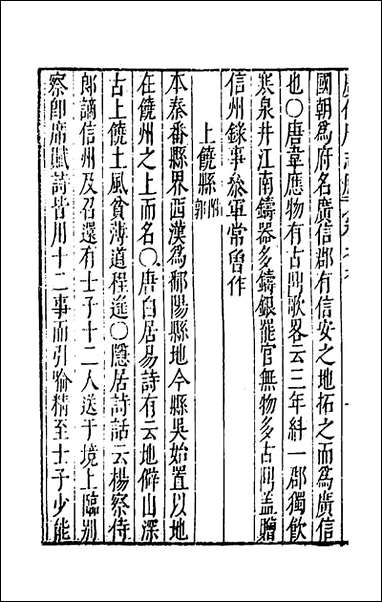 國朝爲府名廣信郡有信安之地拓之而爲廣信
也〇唐韋應物有古鼎歌畧云三年紏一郡獨飲
寒泉井江南鑄器多鑄銀罷官無物多古鼎盖贈
信州錄事叅軍常曾作
上饒縣附郭
本秦番縣界西漢爲鄱陽縣地今縣吳始置以地
在饒州之上而名〇唐白居易詩有云地僻山深
古上饒土風貧薄道程遥〇隱居詩話云楊察侍
郎謫信州及召還有士子十二人送于境上臨别
察卽席賦詩皆用十二事而引喻精至士子少能